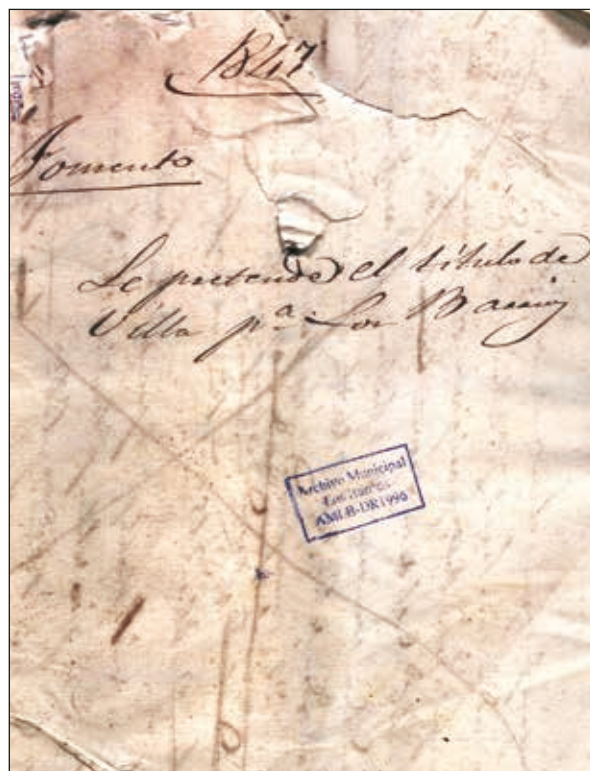 1847
Fomento
Se pretende el título de
Villa p.ª Los Barrios
Archivo Municipal
Los Barrios
AMLB-DR1996